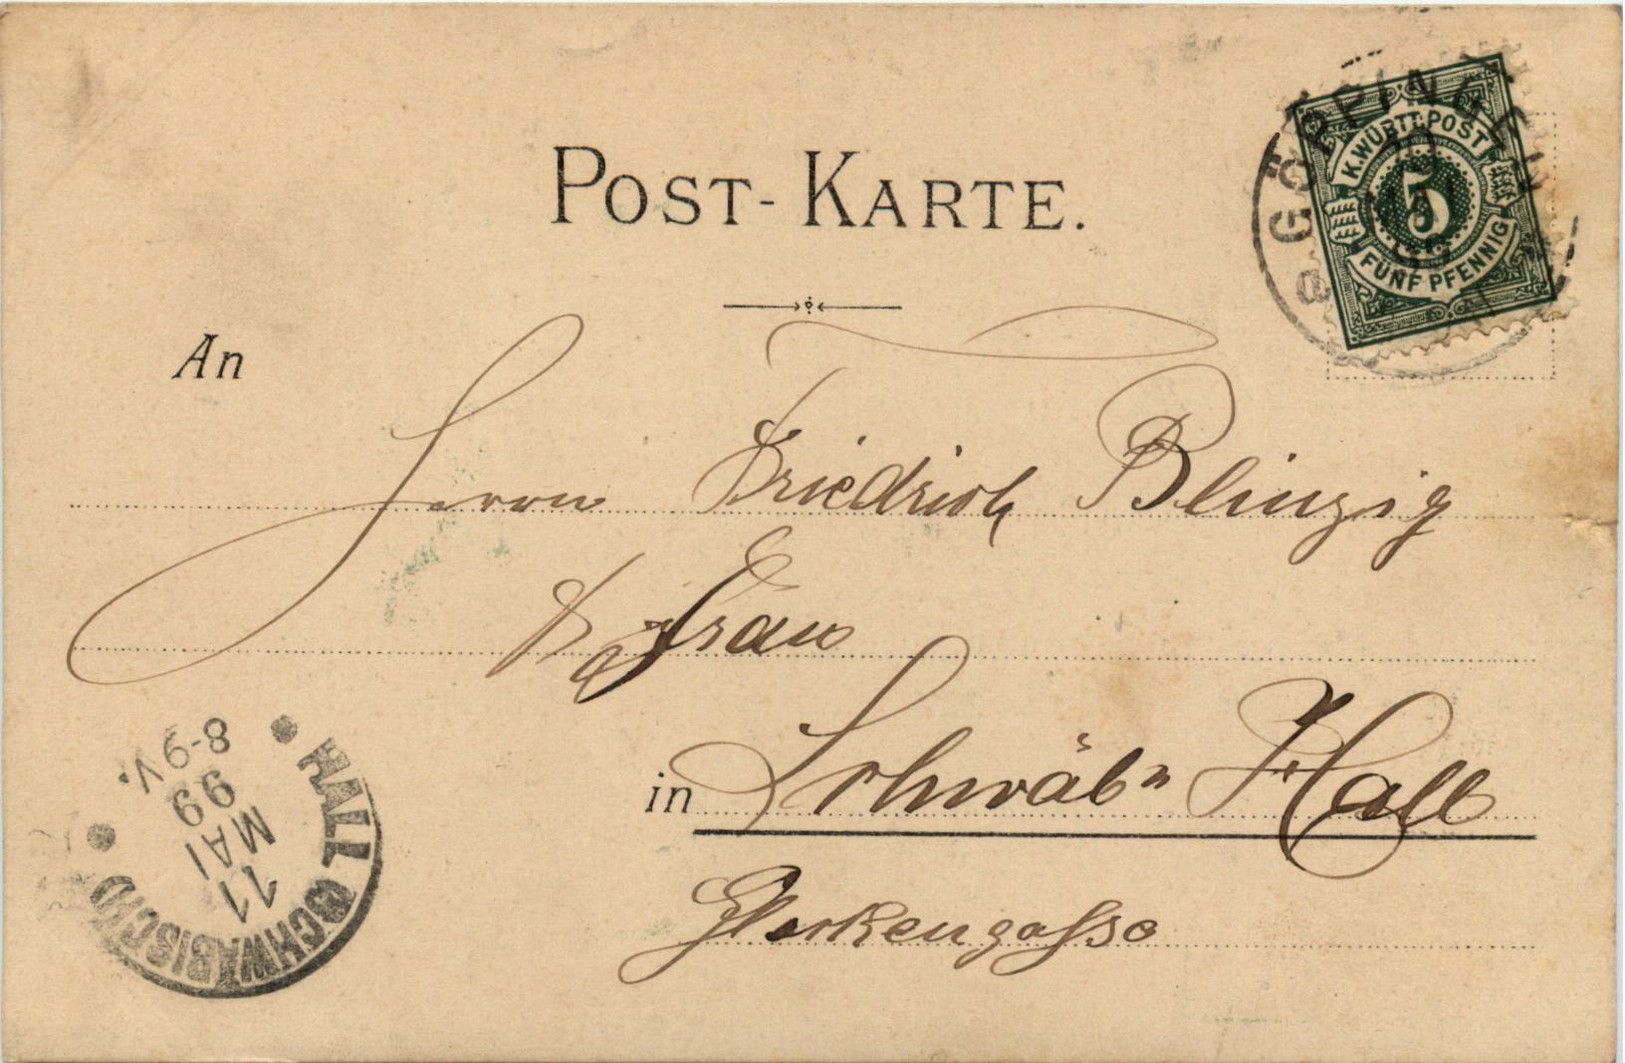 POST-KARTE.
GÖPPINGEN
K. WÜRTT. POST
5
FÜNF PFENNIG
An
Herrn Friedrich Blinzig
& Frau
in Schwäbn Hall
Glockengasse
HALL (SCHWÄBISCH)
11
MAI
99
8-9 V.